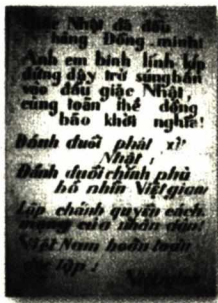 Nhật đã đầu
hàng Đồng minh!
Anh em binh lính kíp
đứng dậy trở súng bắn
vào đầu giặc Nhật,
cùng toàn thể đồng
bào khởi nghĩa!
Đánh đuổi phát xít
Nhật!
Đánh đuổi chính phủ
bù nhìn Việt gian!
Lập chánh quyền cách
mạng của nhân dân!
Việt Nam hoàn toàn
lập!